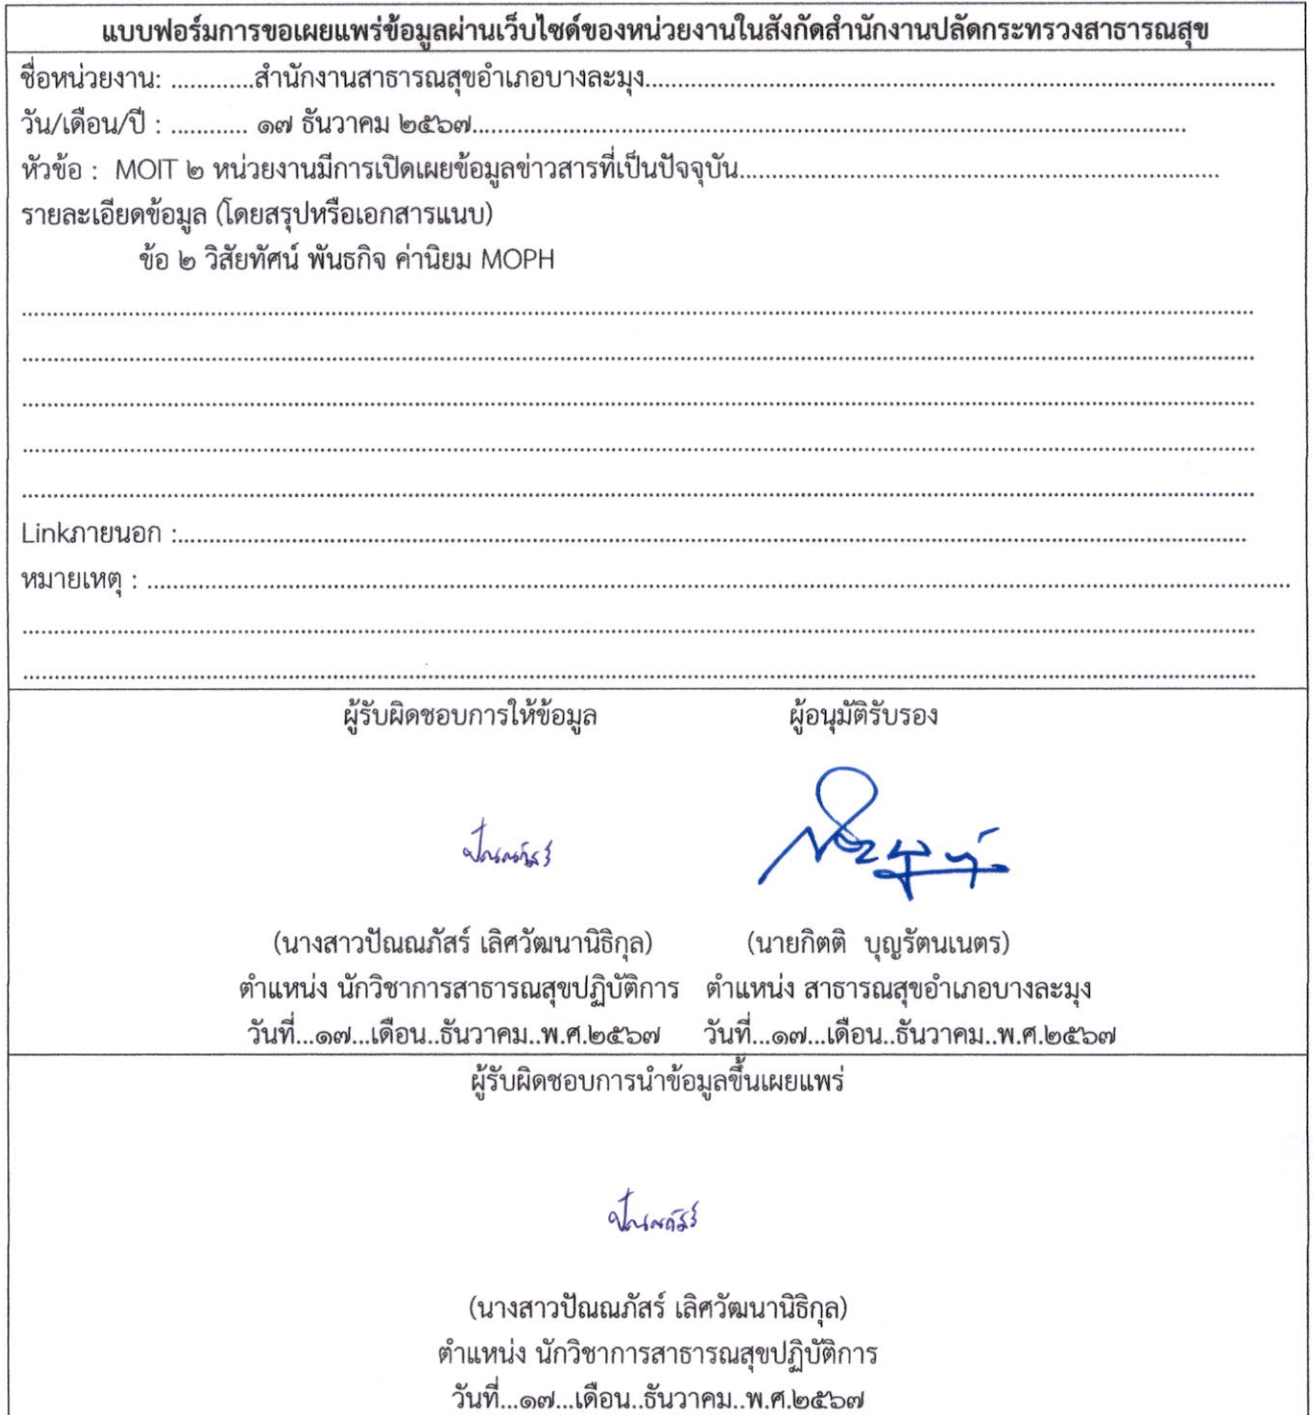 แบบฟอร์มการขอเผยแพร่ข้อมูลผ่านเว็บไซต์ของหน่วยงานในสังกัดสำนักงานปลัดกระทรวงสาธารณสุข
ชื่อหน่วยงาน: .............สำนักงานสาธารณสุขอำเภอบางละมุง....................................................................................................
วัน/เดือน/ปี : ............ ๑๗ ธันวาคม ๒๕๖๗.................................................................................................................
หัวข้อ : MOIT ๒ หน่วยงานมีการเปิดเผยข้อมูลข่าวสารที่เป็นปัจจุบัน............................................................................
รายละเอียดข้อมูล (โดยสรุปหรือเอกสารแนบ)
ข้อ ๒ วิสัยทัศน์ พันธกิจ ค่านิยม MOPH
Linkภายนอก :....................................................................................................................................................
หมายเหตุ : ....................................................................................................................................................
ผู้รับผิดชอบการให้ข้อมูล ผู้อนุมัติรับรอง
ปัณณภัสร์
(นางสาวปัณณภัสร์ เลิศวัฒนานิธิกุล) (นายกิตติ บุญรัตนเนตร)
ตำแหน่ง นักวิชาการสาธารณสุขปฏิบัติการ ตำแหน่ง สาธารณสุขอำเภอบางละมุง
วันที่...๑๗...เดือน..ธันวาคม..พ.ศ.๒๕๖๗ วันที่...๑๗...เดือน..ธันวาคม..พ.ศ.๒๕๖๗
ผู้รับผิดชอบการนำข้อมูลขึ้นเผยแพร่
ปัณณภัสร์
(นางสาวปัณณภัสร์ เลิศวัฒนานิธิกุล)
ตำแหน่ง นักวิชาการสาธารณสุขปฏิบัติการ
วันที่...๑๗...เดือน..ธันวาคม..พ.ศ.๒๕๖๗